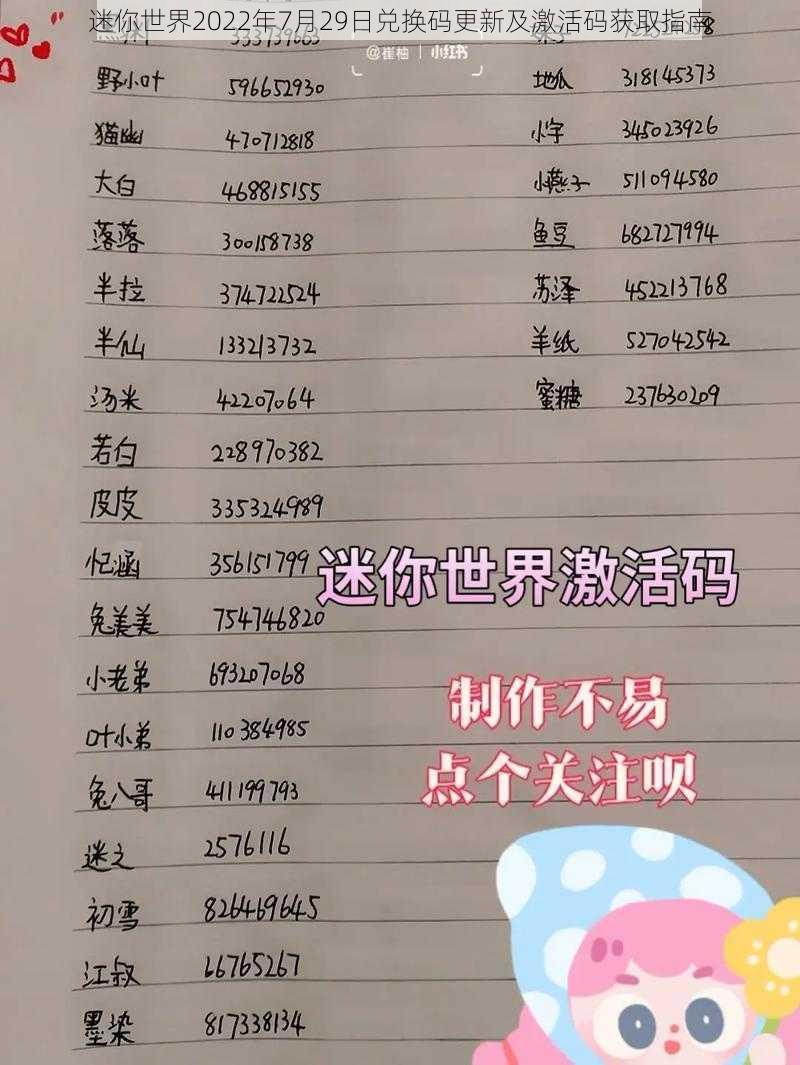 迷你世界2022年7月29日兑换码更新及激活码获取指南
333739663
@崔柚 | 小红书
野小叶 596652930
地瓜 318145373
猫幽 470712818
小字 345023926
大白 468815155
小燕子 511094580
落落 300158738
鱼豆 682727994
半拉 374722524
苏泽 452213768
半仙 133213732
羊纸 527042542
汤米 42207064
蜜糖 237630209
若白 228970382
皮皮 335324989
忆涵 356151799
迷你世界激活码
兔美美 754746820
小老弟 693207068
制作不易
叶小弟 110384985
点个关注呗
兔八哥 411199793
迷之 2576116
初雪 826469645
江叔 66765267
墨染 817338134